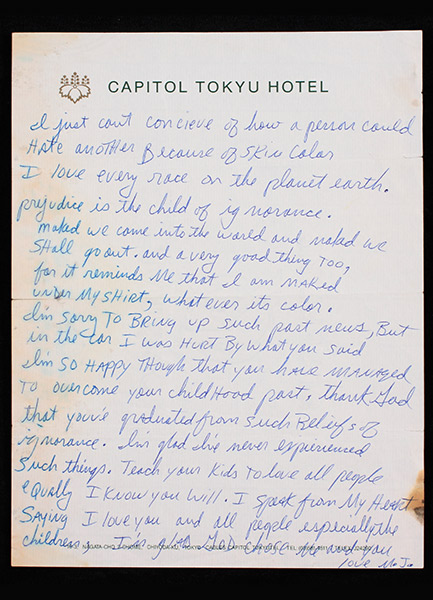 CAPITOL TOKYU HOTEL
I just can't concieve of how a person could
Hate another Because of Skin Color
I love every race on the planet earth.
prejudice is the child of ignorance.
naked we come into the world and naked we
Shall go out. and a very good thing too,
for it reminds Me that I am NAKED
under My SHirt, what ever its color.
I'm Sorry To BRing up Such past news, But
in the car I was Hurt By what you said
I'm SO HAPPY THough that you HAVE MANAGED
To overcome your childHood past, thank God
that you've graduated from Such Beliefs of
ignorance. I'm glad I've never experienced
Such things. Teach your Kids To love all people
equally I know you will. I speak from My Heart
Saying I love you and all people especially the
children. I'm glad God chose me and you
love M.J.